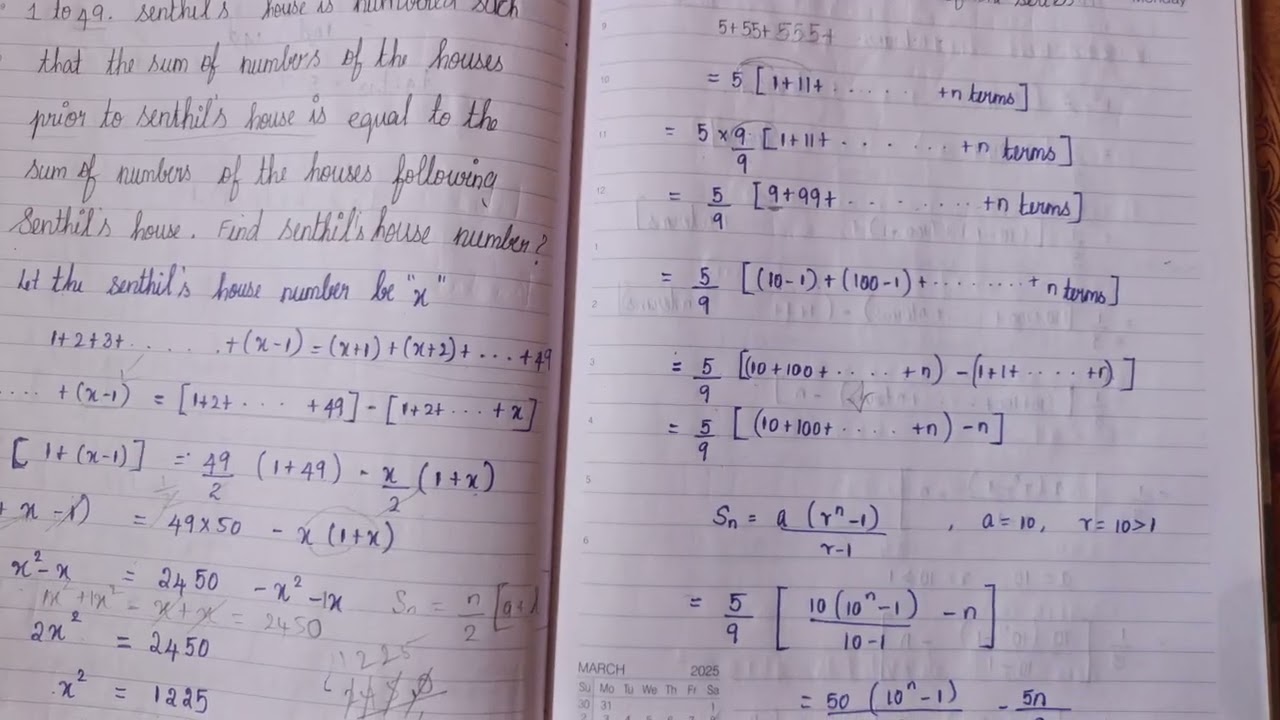 1 to 49. Senthil's house is numbered such
that the sum of numbers of the houses
prior to senthil's house is equal to the
sum of numbers of the houses following
Senthil's house. Find senthil's house number?
Let the senthil's house number be "x"
1+2+3+ . . . . . . +(x-1) = (x+1)+(x+2)+ . . . +49
. . . . +(x-1) = [1+2+ . . . . +49] - [1+2+ . . . +x]
[1+(x-1)] = 49/2 (1+49) - x/2 (1+x)
+ x - 1) = 49×50 - x(1+x)
x² - x = 2450 - x² - 1x
Sn = n/2 [a+l
1x² + 1x² - x + x = 2450
2x² = 2450
1225
x² = 1225
Monday
5+55+555+
9
= 5 [1+11+ . . . . . . +n terms]
10
= 5 × 9/9 [1+11+ . . . . . . +n terms]
11
= 5/9 [9+99+ . . . . . . . +n terms]
12
1
= 5/9 [(10-1)+(100-1)+ . . . . . . . + n terms]
2
= 5/9 [(10+100+ . . . . +n) - (1+1+ . . . . +n)]
3
= 5/9 [(10+100+ . . . . . +n) - n]
4
5
Sn = a(rⁿ-1)/r-1 , a = 10, r = 10>1
6
= 5/9 [10(10ⁿ-1)/10-1 - n]
MARCH 2025
Su Mo Tu We Th Fr Sa
30 31 1
= 50(10ⁿ-1) - 5n